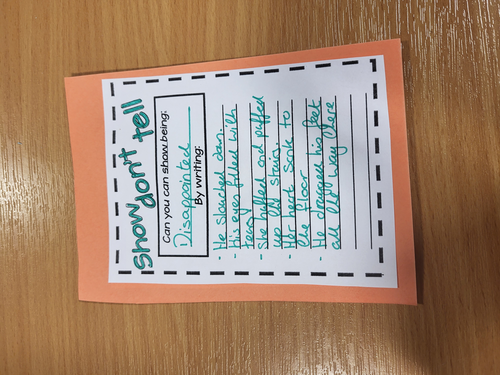 Show
don't tell
Can you can show being:
Disappointed
By writing:
- He slouched down.
- His eyes filled with
tears
- She huffed and puffed
up the stairs.
- Her heart sank to
the floor
- He dragged his feet
all the way there